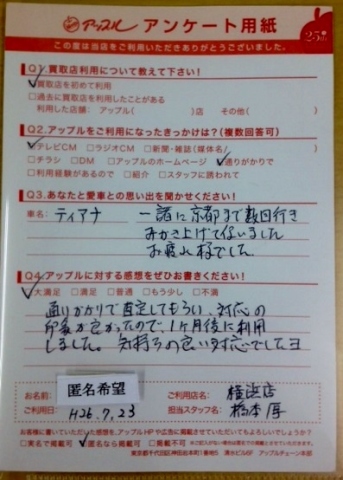 アップル アンケート用紙
25th
この度は当店をご利用いただきありがとうございました。
Q1.買取店利用について教えて下さい!
☑買取店を初めて利用
□過去に買取店を利用したことがある
利用した店舗 アップル( )店 その他( )
Q2.アップルをご利用になったきっかけは?(複数回答可)
☑テレビCM □ラジオCM □新聞・雑誌(媒体名 )
□チラシ □DM □アップルのホームページ ☑通りがかりで
□利用経験があるので □紹介 □スタッフに誘われて
Q3.あなたと愛車との思い出を聞かせください!
車名: ティアナ 一諸に京都まで数回行き
みがき上げて伝いました
お疲れ様でした
Q4.アップルに対する感想をぜひお書きください!
☑大満足 □満足 □普通 □もう少し □不満
通りがかりで査定してもらい、対応の
印象が良かったので、1ヶ月後に利用
しました。気持ちの良い対応でしたヨ
お名前: 匿名希望 ご利用店名: 橋本店
ご利用日: H26.7.23 担当スタッフ名:
お客様に書いていただいた感想を、アップルHPや広告に掲載させていただいてもよろしいでしょうか?
□実名で掲載可 ☑匿名なら掲載可 □掲載不可
東京都千代田区神田佐久間町1番地5 清水ビル6F アップルチェーン本部